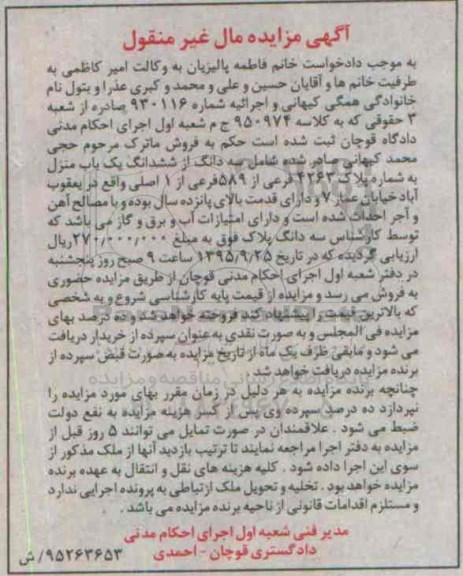 آگهی مزایده مال غیر منقول
به موجب دادخواست خانم فاطمه پالیزیان به وکالت امیر کاظمی به
طرفیت خانم ها و آقایان حسین و علی و محمد و کبری عذرا و بتول نام
خانوادگی همگی کیهانی و اجرائیه شماره ۹۳۰۱۱۶ صادره از شعبه
۳ حقوقی که به کلاسه ۹۵۰۹۷۴ ج م شعبه اول اجرای احکام مدنی
دادگاه قوچان ثبت شده است حکم به فروش ماترک مرحوم حجی
محمد کیهانی صادر شده شامل سه دانگ از ششدانگ یک باب منزل
به شماره پلاک ۴۲۶۳ فرعی از ۵۸۹ فرعی از ۱ اصلی واقع در یعقوب
آباد خیابان عمار ۷ و دارای قدمت بالای پانزده سال بوده و با مصالح آهن
و آجر احداث شده است و دارای امتیازات آب و برق و گاز می باشد که
توسط کارشناس سه دانگ پلاک فوق به مبلغ ۲۷۰/۰۰۰/۰۰۰ ریال
ارزیابی گردیده که در تاریخ ۱۳۹۵/۹/۲۵ ساعت ۹ صبح روز پنجشنبه
در دفتر شعبه اول اجرای احکام مدنی قوچان از طریق مزایده حضوری
به فروش می رسد و مزایده از قیمت پایه کارشناسی شروع و به شخصی
که بالاترین قیمت را پیشنهاد کند فروخته خواهد شد و ده درصد بهای
مزایده فی المجلس و به صورت نقدی به عنوان سپرده از خریدار دریافت
می شود و مابقی ظرف یک ماه از تاریخ مزایده به صورت قبض سپرده از
برنده مزایده دریافت خواهد شد .
چنانچه برنده مزایده به هر دلیل در زمان مقرر بهای مورد مزایده را
نپردازد ده درصد سپرده وی پس از کسر هزینه مزایده به نفع دولت
ضبط می شود . علاقمندان در صورت تمایل می توانند ۵ روز قبل از
مزایده به دفتر اجرا مراجعه نمایند تا ترتیب بازدید آنها از ملک مذکور از
سوی این اجرا داده شود . کلیه هزینه های نقل و انتقال به عهده برنده
مزایده خواهد بود . تخلیه و تحویل ملک ارتباطی به پرونده اجرایی ندارد
و مستلزم اقدامات قانونی از ناحیه برنده مزایده می باشد .
مدیر فنی شعبه اول اجرای احکام مدنی
دادگستری قوچان - احمدی
۹۵۲۶۳۶۵۳/ ش